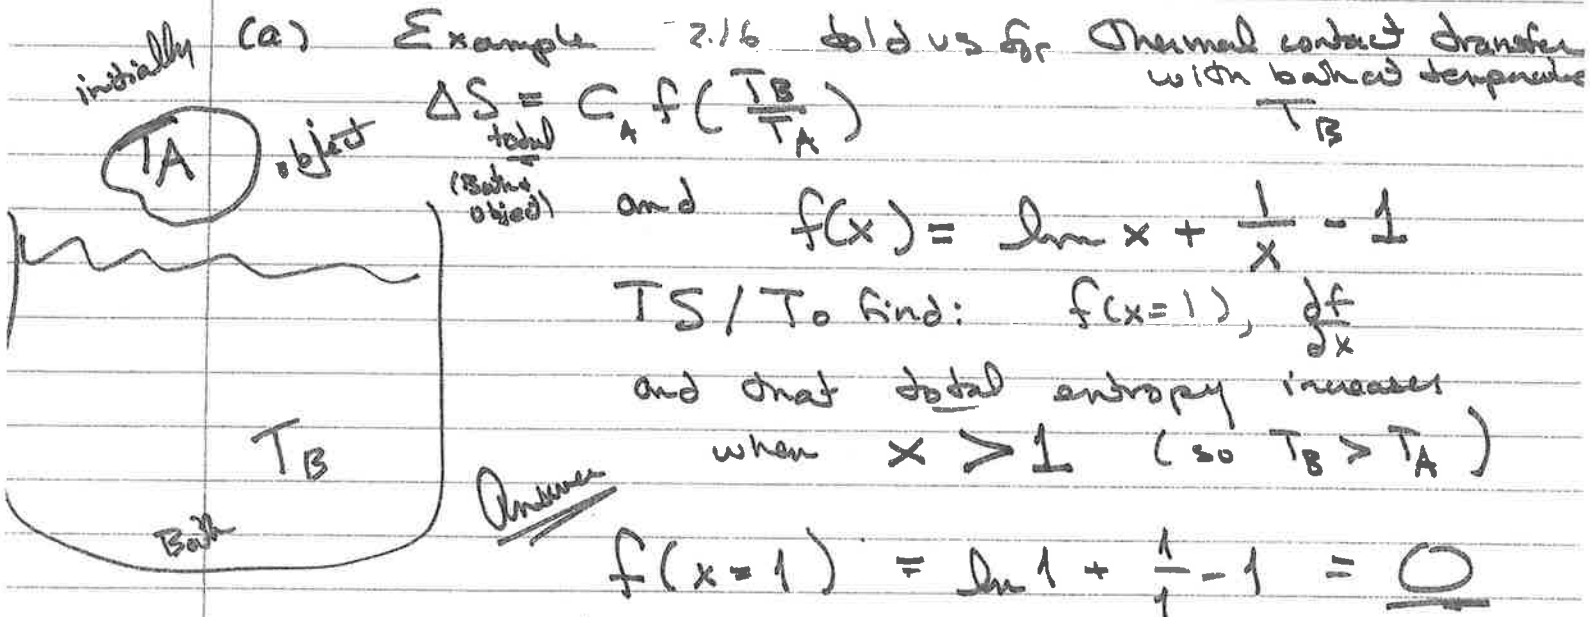 initially (a) Example 2.16 told us for Thermal contact transfer
with bath at temperature
T_B
ΔS_total = C_A f(T_B/T_A)
(Bath + object)
T_A object
and f(x) = ln x + 1/x - 1
TS / To find: f(x=1), df/dx
and that total entropy increases
when x > 1 (so T_B > T_A)
T_B
Bath
Answer
f(x=1) = ln 1 + 1/1 - 1 = 0